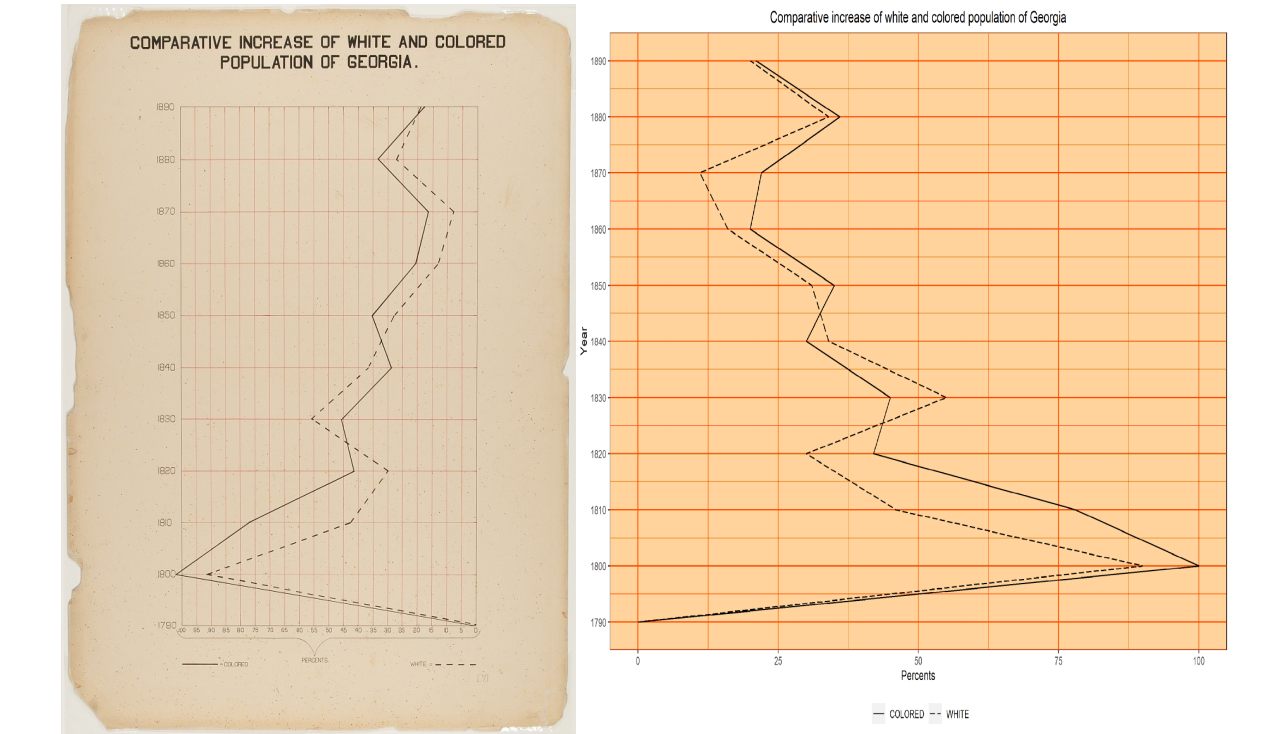 COMPARATIVE INCREASE OF WHITE AND COLORED
POPULATION OF GEORGIA.
1890
1880
1870
1860
1850
1840
1830
1820
1810
1800
1790
100 95 90 85 80 75 70 65 60 55 50 45 40 35 30 25 20 15 10 5 0
PERCENTS
= COLORED
WHITE =
Comparative increase of white and colored population of Georgia
Year
1890
1880
1870
1860
1850
1840
1830
1820
1810
1800
1790
0 25 50 75 100
Percents
COLORED WHITE